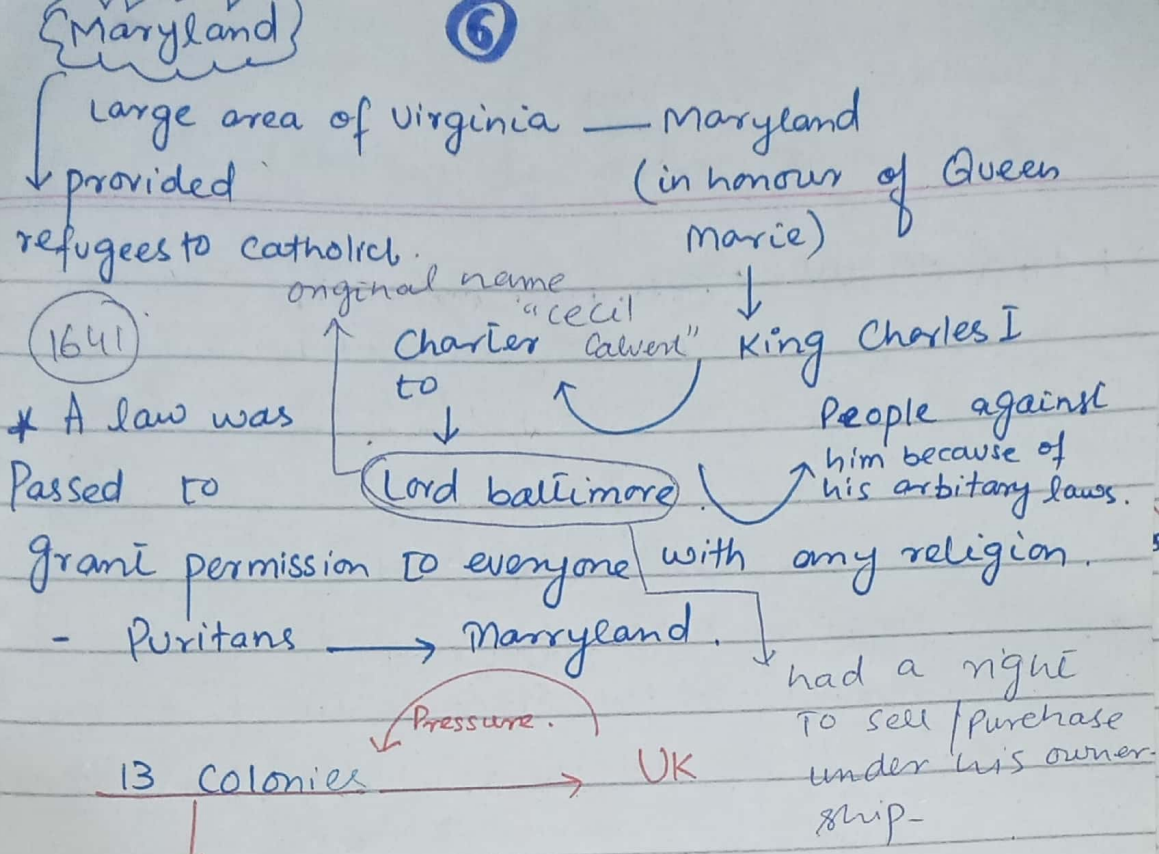 Maryland
6
Large area of virginia — Maryland
provided
(in honour of Queen
Marie)
refugees to catholict.
original name
"cecil
Calvert"
1641
Charter
to
King Charles I
People against
him because of
his arbitary laws.
* A law was
Passed to
Lord baltimore
grant permission to everyone with any religion.
- Puritans → Marryland.
had a right
To sell / purchase
under his owner-
ship-
Pressure.
13 Colonies → UK